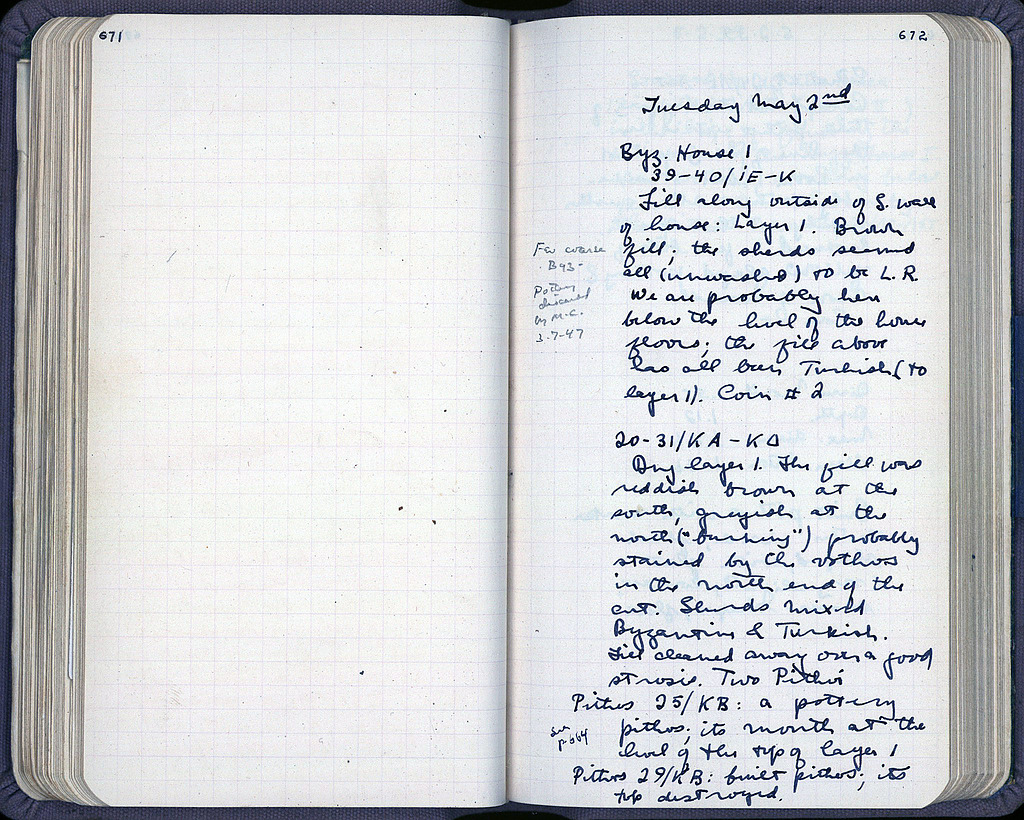 671
672
Tuesday May 2nd
Byz. House 1
39-40/ΙΕ-Κ
Fill along outside of S. wall
of house: Layer 1. Brown
fill; the sherds seemed
all (unwashed) to be L.R.
We are probably here
below the level of the house
floors; the fill above
has all been Turkish (to
layer 1). Coin # 2
Few coarse
Byz-
Pottery
discarded
by M.C.
3-7-47
20-31/ΚΑ-ΚΔ
Dug layer 1. The fill was
reddish brown at the
south, greyish at the
north ("burning") probably
stained by the vothros
in the north end of the
cut. Sherds mixed
Byzantine & Turkish.
Fill cleared away over a good
strosis. Two Pithoi
Pithos 25/ΚΒ: a pottery
pithos; its mouth at the
level of the top of layer 1
see
p. 664
Pithos 29/ΚΒ: built pithos; its
top destroyed.